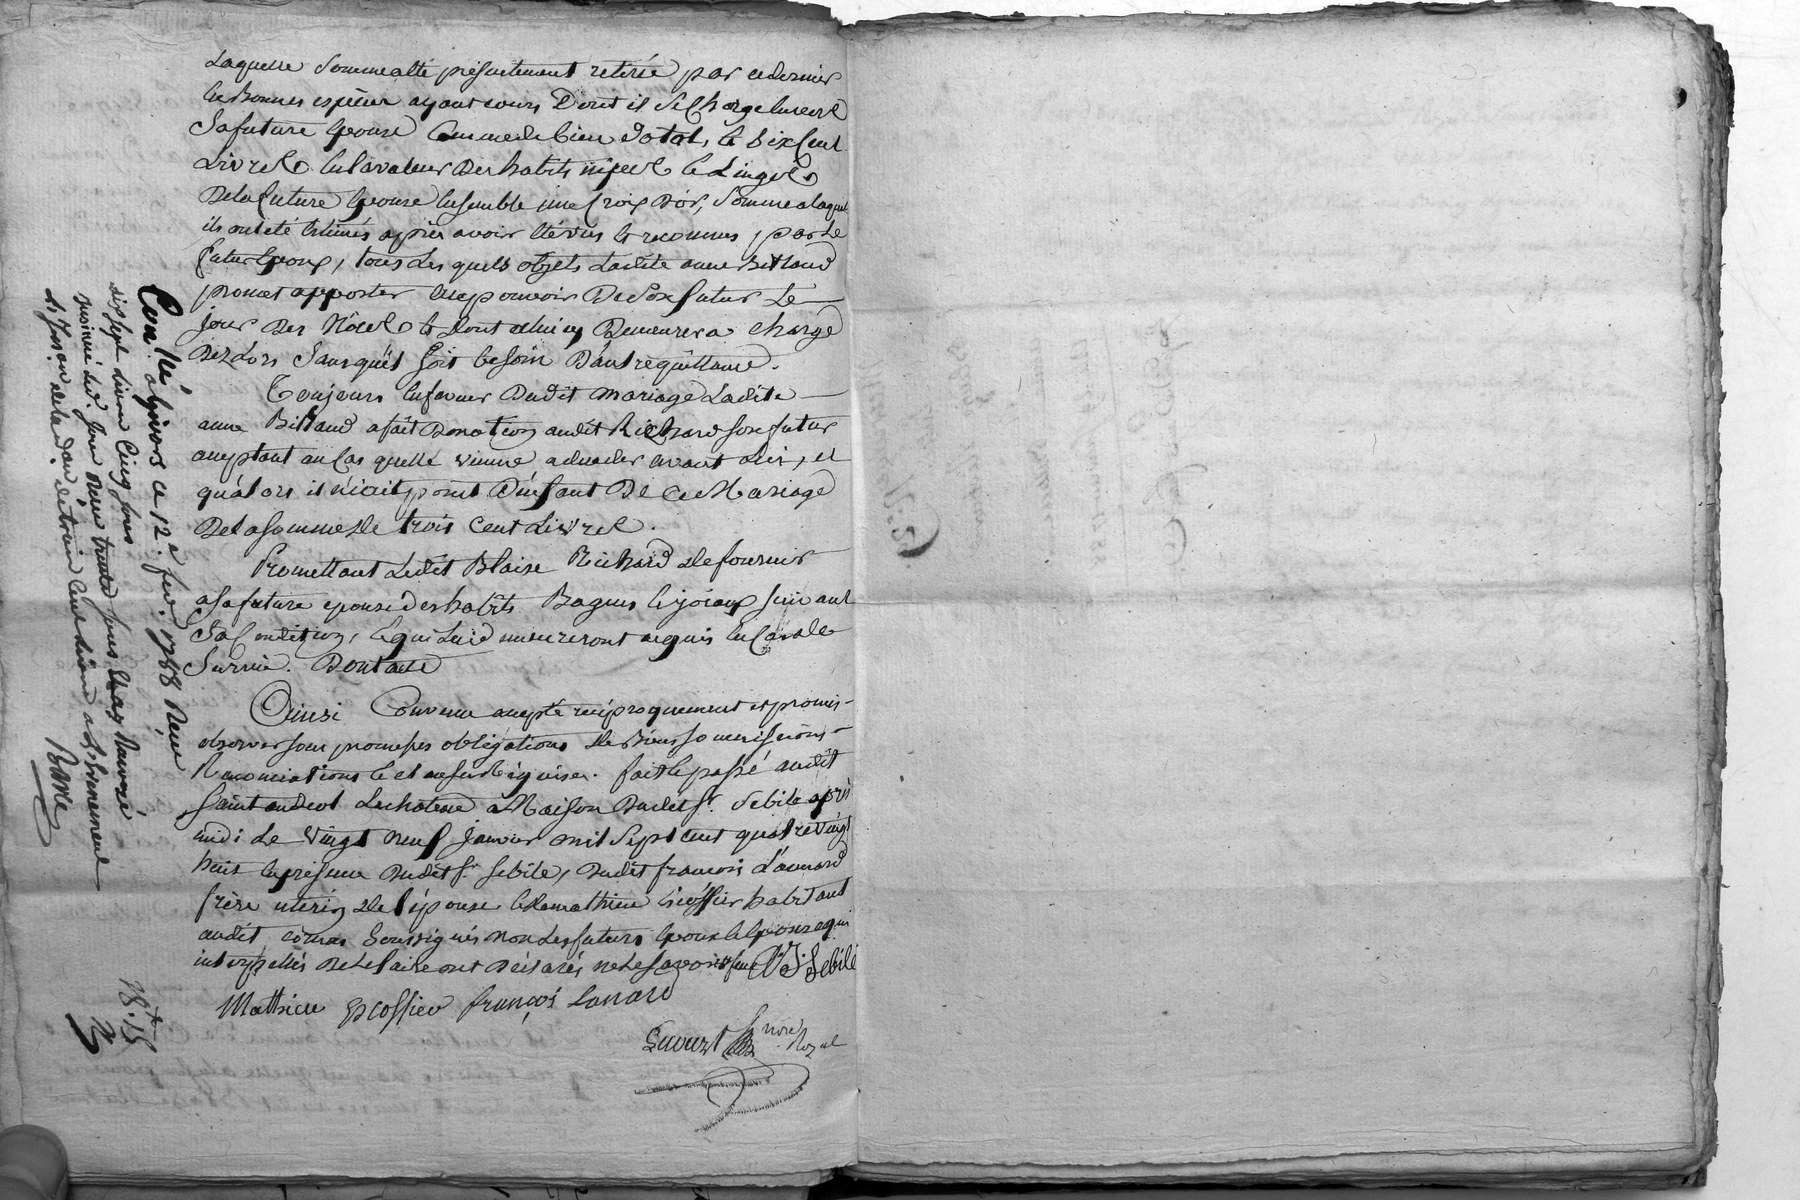 Laquelle somme a été présentement retirée par ce dernier
en Bonnes espèces ayant cours Dont il se charge envers
sa future epouse comme de bien dotal, et six cent
Livres en la valeur des habits nipes et Linges
De la future epouse ensemble une Croix D'or, somme a laquel
ils ont été estimés après avoir été vus et reconnus par Le
futur epoux, tous Lesquels objets Ladite anne Billaud
promet apporter au pouvoir De son futur Le
jour des Nôces et dont celui cy Demeurera chargé
Dez Lors sans qu'il soit besoin D'autre quittance.
Toujours en faveur Dudit mariage Ladite
anne Billaud a fait Donation audit Richard son futur
acceptant au Cas quelle vienne a deceder avant lui, et
qu'alors il n'ait point D'enfant De ce Mariage
De la somme de trois cent Livres.
Promettant Ledit Blaise Richard de fournir
a sa future epouse des habits Bagues et joiaux suivant
sa Condition, et qui Lui demeureront acquis en Cas de
survie. Dont acte
Ainsi Convenu accepté reciproquement et promis
observer sous promesses obligations de Biens soumissions
Renonciations et clauses requises. fait et passé audit
saint andeol Le chateau Maison Dudit sr. Sebile après
midi Le vingt neuf janvier mil sept cent quatre vingt
huit en presence Dudit sr. Sebile, Dudit francois Lannard
frère uterin de l'épouse et de mathieu escoffier habitant
audit Soussignés non Les futurs epoux et epouse qui
interpellés De Le faire ont Déclarés ne Le savoir V. J. Sebile
Mathieu Escoffier françois Lanard
nore Royal
Conllé a Givors ce 12e. fev. 1788 Reçu
dix sept livres cinq sous
insinué led. jour Reçu trente sous
de la Don. de trois cent livres
18tt. 15